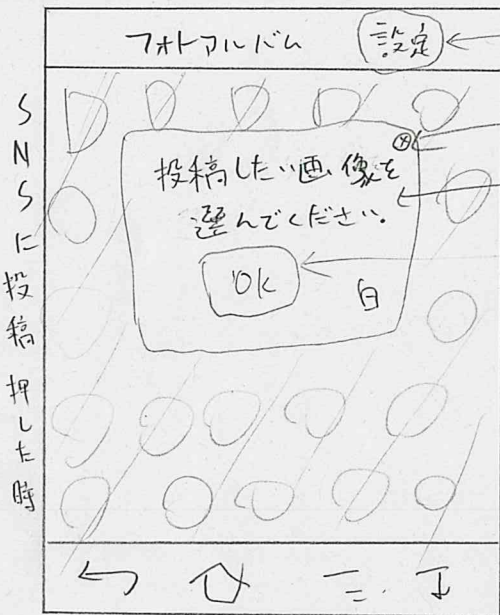 フォトアルバム
設定
SNSに投稿押した時
投稿したい画像を
選んでください。
OK
白